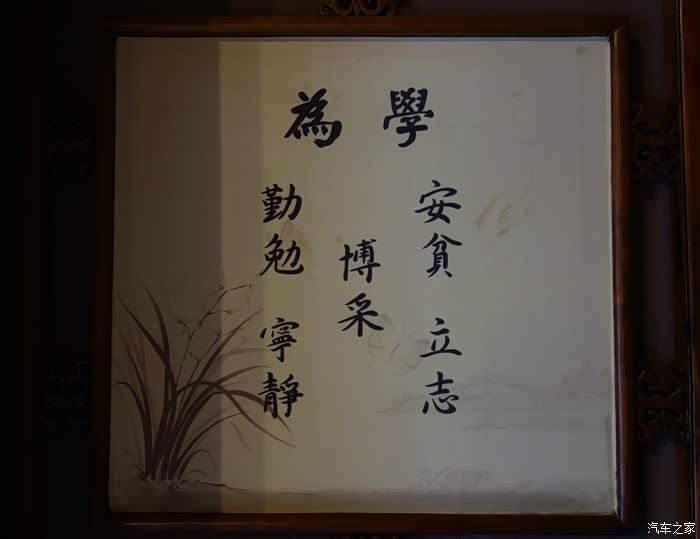 為學
安貧 立志
博采
勤勉 寧靜
汽车之家